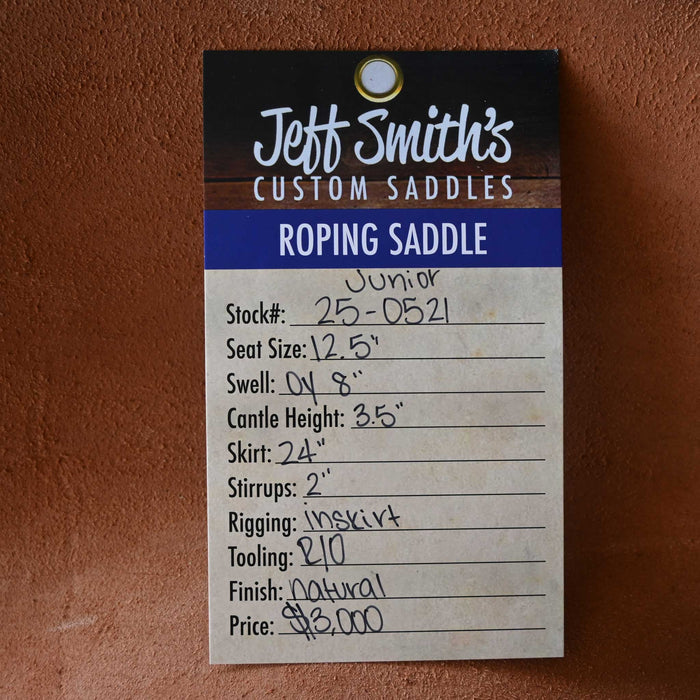 Jeff Smith's
CUSTOM SADDLES
ROPING SADDLE
Junior
Stock#: 25-0521
Seat Size: 12.5"
Swell: Oy 8"
Cantle Height: 3.5"
Skirt: 24"
Stirrups: 2"
Rigging: inskirt
Tooling: R/O
Finish: natural
Price: $3,000